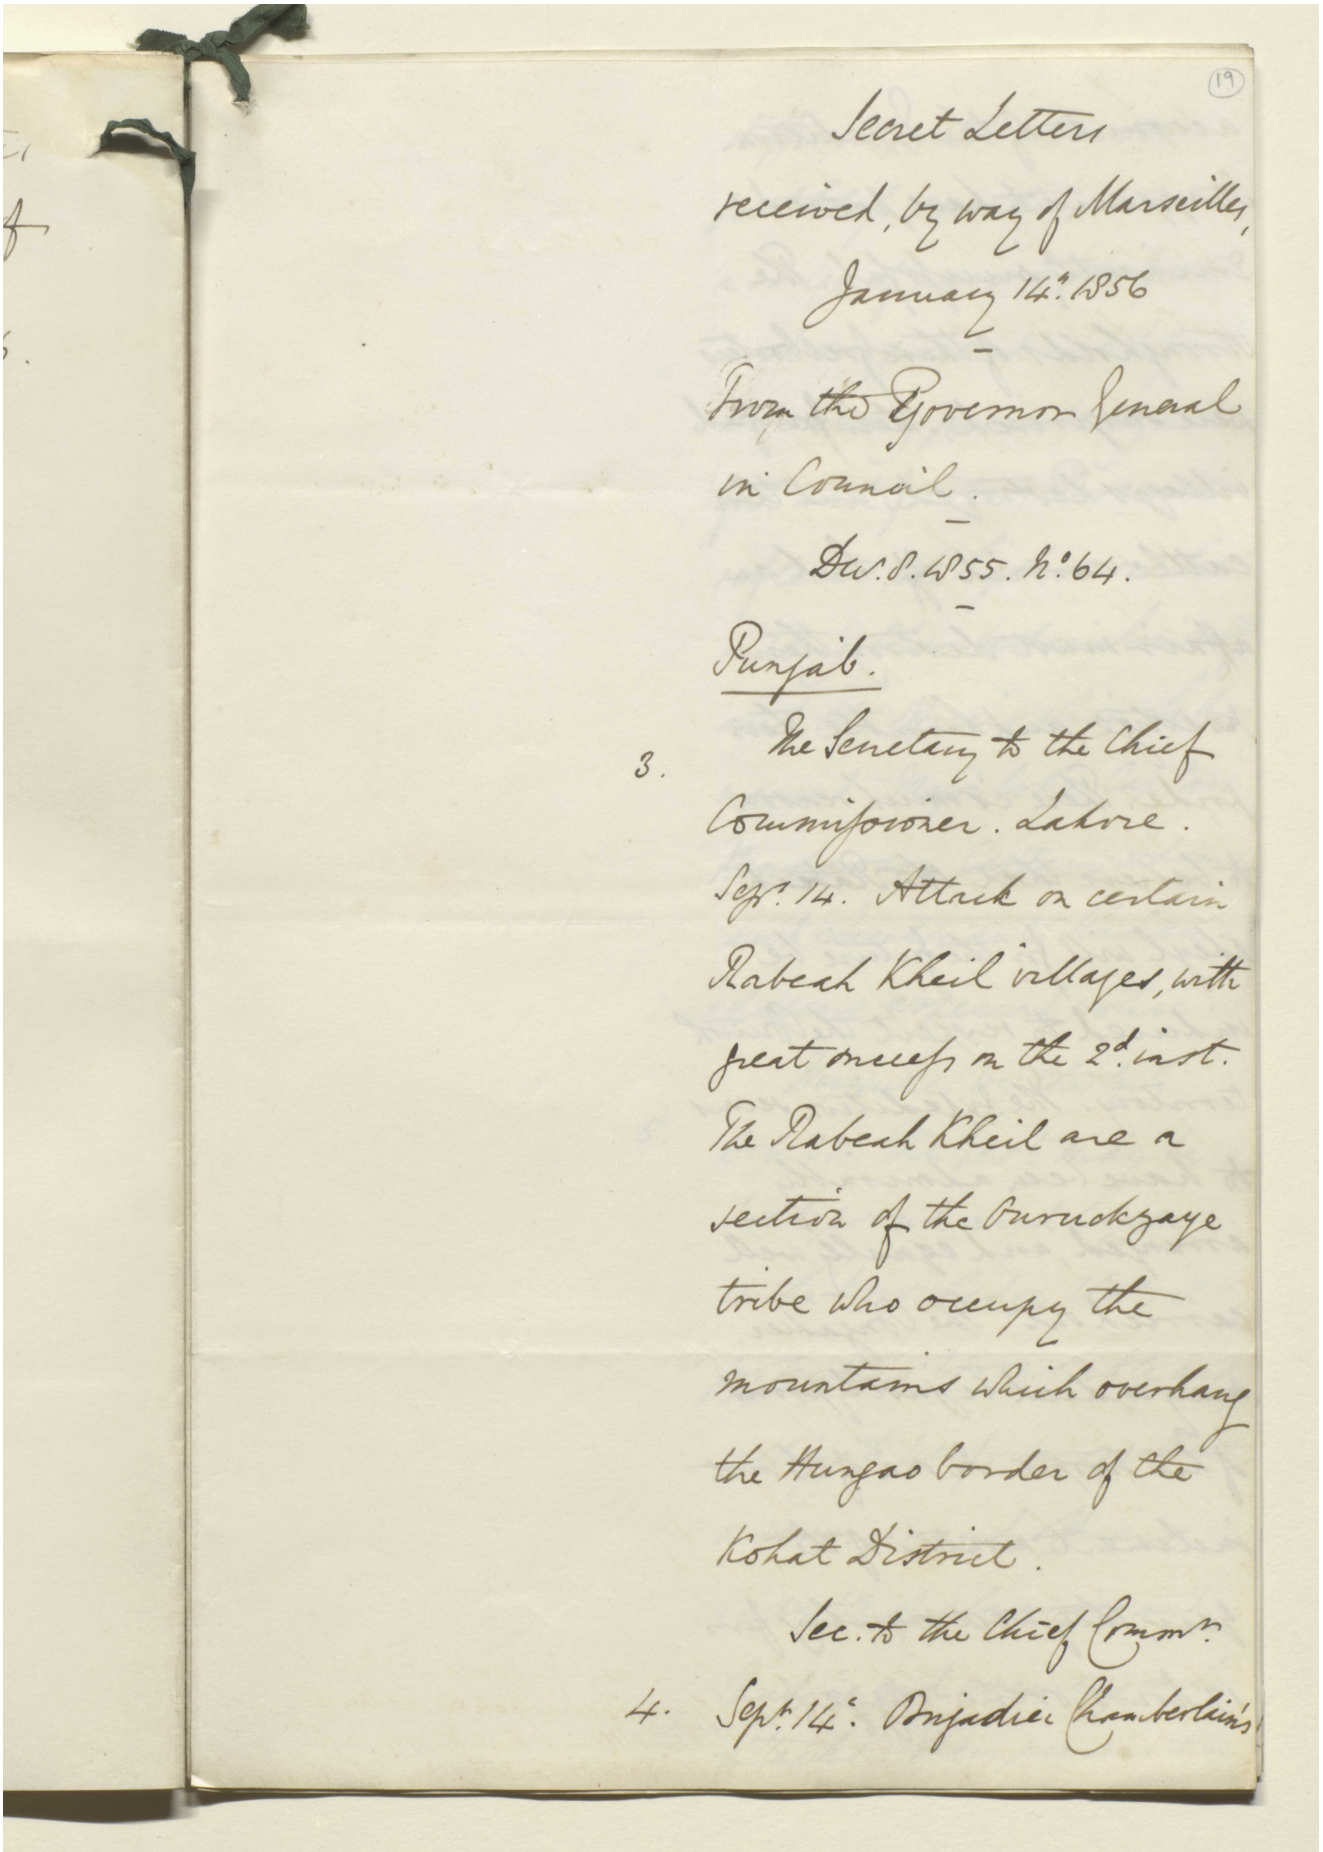 19
Secret Letters
received, by way of Marseilles,
January 14th. 1856
From the Governor General
in Council.
Dec. 8. 1855. No. 64.
Punjab.
3. The Secretary to the Chief
Commissioner. Lahore.
Sepr. 14. Attack on certain
Rabeah Kheil villages, with
great success on the 2d. inst.
The Rabeah Kheil are a
section of the Ouruckzaye
tribe who occupy the
mountains which overhang
the Hungao border of the
Kohat District.
Sec. to the Chief Commr.
4. Sepr. 14th. Brigadier Chamberlain's